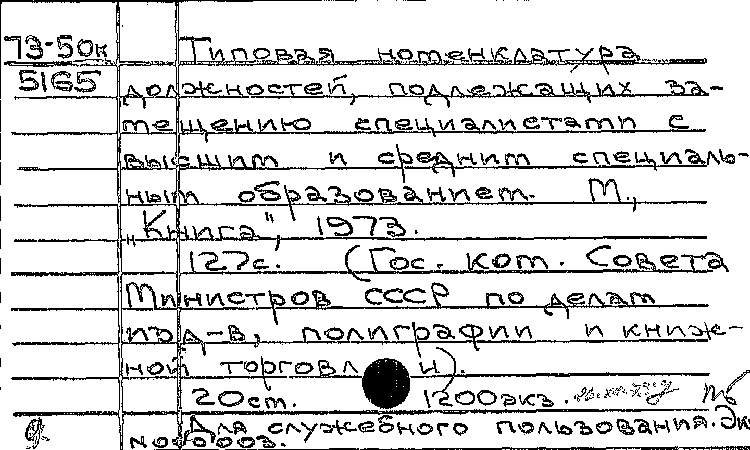 73-50к Типовая номенклатура
5165 должностей, подлежащих за-
мещению специалистами с
высшим и средним специаль-
ным образованием. М.,
„Книга", 1973.
127с. (Гос. ком. Совета
Министров СССР по делам
изд-в, полиграфии и книж-
ной торговли).
20см. 1200экз.
Для служебного пользования. Эк